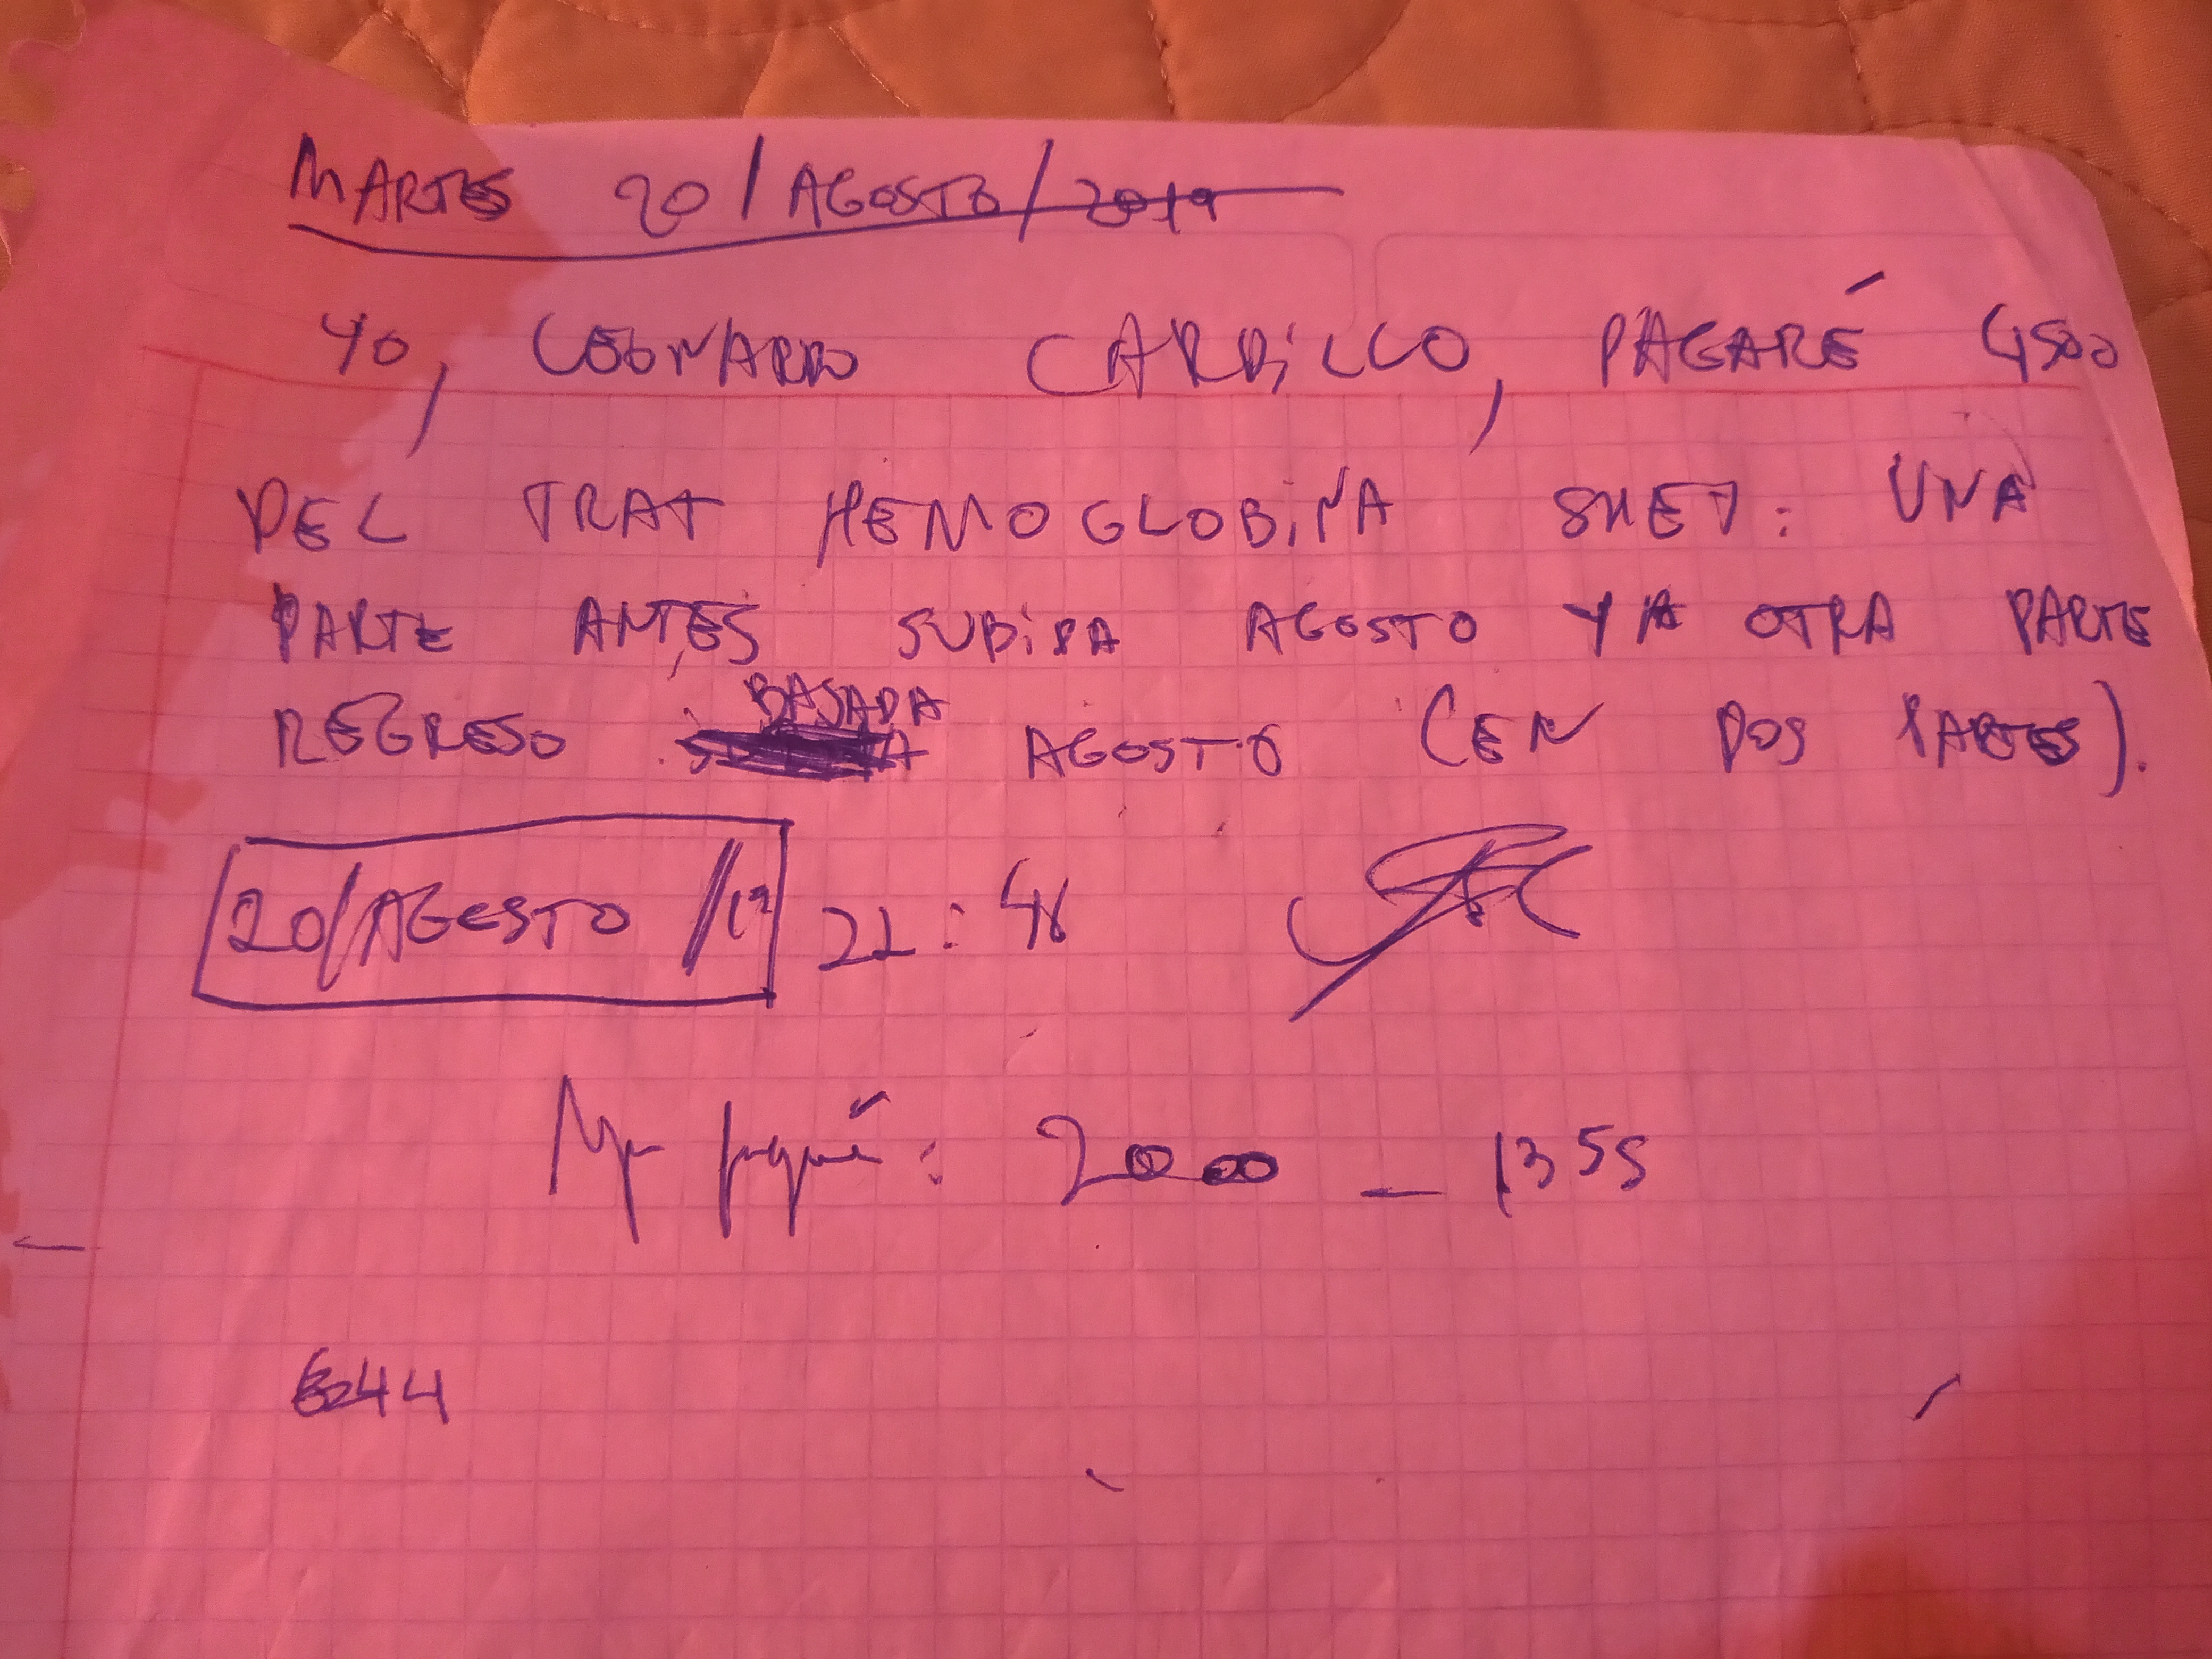 MARTES 20/AGOSTO/2019
YO, LEONARDO CARRILLO, PAGARÉ 4500
DEL TRAT HEMOGLOBINA : UNA
PARTE ANTES SUBIDA AGOSTO Y LA OTRA PARTE
REGRESO BAJADA AGOSTO (EN DOS PARTES).
20/AGOSTO/19 22:48
pagué: 2000 - 1355
44